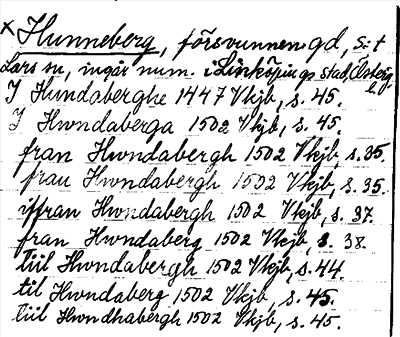 × Hunneberg, försvunnen gd, s:t
Lars sn, ingår num. i Linköpings stad, Österg.
I Hundaberghe 1447 Vkjb, s. 45.
I Hwndaberga 1502 Vkjb, s. 45.
fran Hwndabergh 1502 Vkjb, s. 35.
frau Hwndabergh 1502 Vkjb, s. 35.
iffran Hwndabergh 1502 Vkjb, s. 37.
fran Hwndaberg 1502 Vkjb, s. 38.
tiil Hwndabergh 1502 Vkjb, s. 44.
til Hwndaberg 1502 Vkjb, s. 45.
tiil Hwndhabergh 1502 Vkjb, s. 45.